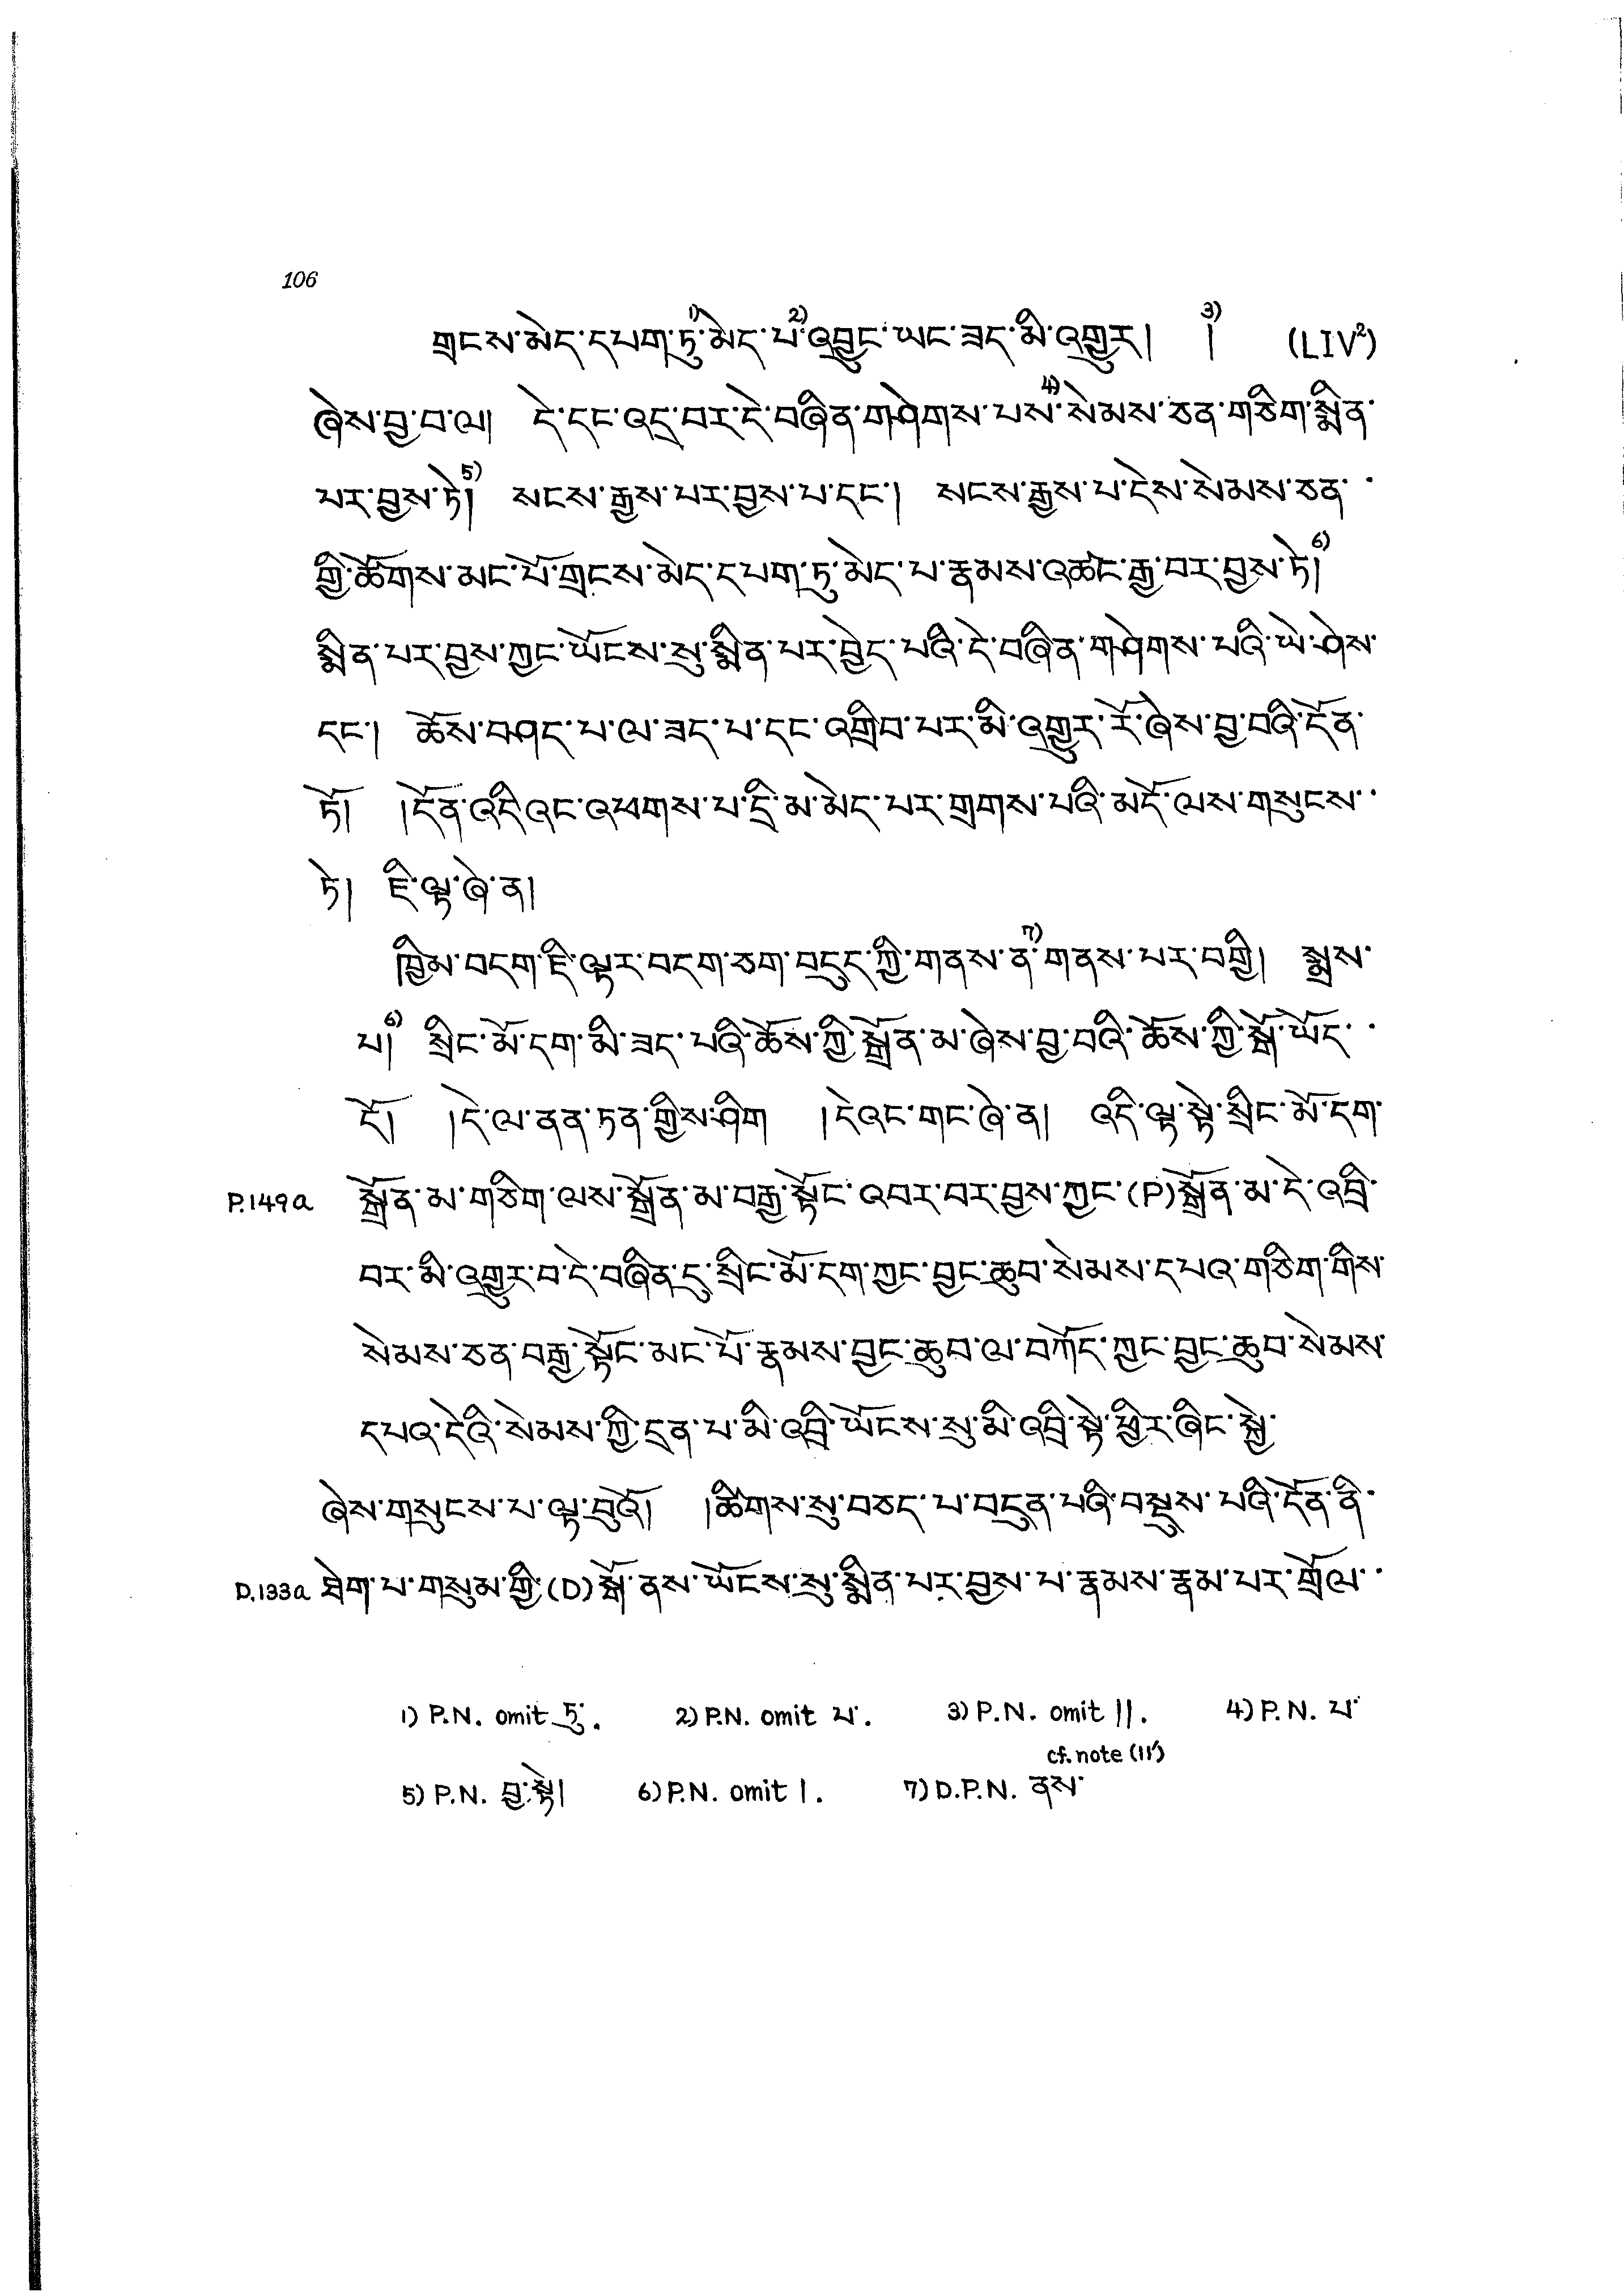 106
གྲངས་མེད་དཔག་ཏུ་¹⁾མེད་པ་²⁾འབྱུང་ཡང་ཟད་མི་འགྱུར། །³⁾ (LIV²)
ཞེས་བྱ་བ་ལ། དེ་དང་འདྲ་བར་དེ་བཞིན་གཤེགས་པས་⁴⁾སེམས་ཅན་གཅིག་སྨིན་
པར་བྱས་ཏེ།⁵⁾ སངས་རྒྱས་པར་བྱས་པ་དང་། སངས་རྒྱས་པ་དེས་སེམས་ཅན་ ་
གྱི་ཚོགས་མང་པོ་གྲངས་མེད་དཔག་ཏུ་མེད་པ་རྣམས་འཚང་རྒྱ་བར་བྱས་ཏེ།⁶⁾
སྨིན་པར་བྱས་ཀྱང་ཡོངས་སུ་སྨིན་པར་བྱེད་པའི་དེ་བཞིན་གཤེགས་པའི་ཡེ་ཤེས་
དང་། ཆོས་བཤད་པ་ལ་ཟད་པ་དང་འགྲིབ་པར་མི་འགྱུར་རོ་ཞེས་བྱ་བའི་དོན་
ཏོ། །དོན་འདི་འང་འཕགས་པ་དྲི་མ་མེད་པར་གྲགས་པའི་མདོ་ལས་གསུངས་ ་
ཏེ། ཇི་ལྟ་ཞེ་ན།
ཁྱིམ་བདག་ཇི་ལྟར་བདག་ཅག་བདུད་ཀྱི་གནས་ན་⁷⁾གནས་པར་བགྱི། སྨྲས་
པ།⁶⁾ སྲིང་མོ་དག་མི་ཟད་པའི་ཆོས་ཀྱི་སྒྲོན་མ་ཞེས་བྱ་བའི་ཆོས་ཀྱི་སྒོ་ཡོད་ ་
དོ། །དེ་ལ་ནན་ཏན་གྱིས་ཤིག །དེ་འང་གང་ཞེ་ན། འདི་ལྟ་སྟེ་སྲིང་མོ་དག་
P.149a སྒྲོན་མ་གཅིག་ལས་སྒྲོན་མ་བརྒྱ་སྟོང་འབར་བར་བྱས་ཀྱང་(P)སྒྲོན་མ་དེ་འབྲི་
བར་མི་འགྱུར་བ་དེ་བཞིན་དུ་སྲིང་མོ་དག་ཀྱང་བྱང་ཆུབ་སེམས་དཔའ་གཅིག་གིས་
སེམས་ཅན་བརྒྱ་སྟོང་མང་པོ་རྣམས་བྱང་ཆུབ་ལ་བཀོད་ཀྱང་བྱང་ཆུབ་སེམས་
དཔའ་དེའི་སེམས་ཀྱི་དྲན་པ་མི་འབྲི་ཡོངས་སུ་མི་འབྲི་སྟེ་ཕྱིར་ཞིང་སྐྱེ་
ཞེས་གསུངས་པ་ལྟ་བུའོ། །ཚིགས་སུ་བཅད་པ་བདུན་པའི་བསྡུས་པའི་དོན་ནི་
D.133a ཐེག་པ་གསུམ་གྱི་(D)སྒོ་ནས་ཡོངས་སུ་སྨིན་པར་བྱས་པ་རྣམས་རྣམ་པར་གྲོལ་ ་
1) P.N. omit ཏུ་. 2) P.N. omit པ་. 3) P.N. omit ||. 4) P.N. པ་
cf. note (11')
5) P.N. བྱ་སྟེ། 6) P.N. omit |. 7) D.P.N. ནས་